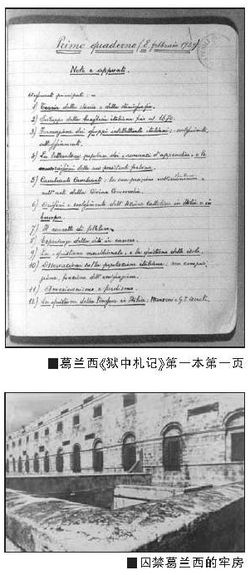 Primo quaderno (8 febbraio 1929)
Note e appunti.
Argomenti principali: –
1) Teoria della storia e della storiografia.
2) Sviluppo della borghesia italiana fino al 1870.
3) Formazione dei gruppi intellettuali italiani: svolgimento,
atteggiamenti.
4) La letteratura popolare dei "romanzi d'appendice" e le
ragioni della sua persistente fortuna.
5) Cavalcante Cavalcanti: la sua posizione nella struttura e
nell'arte della Divina Commedia.
6) Origini e svolgimento dell'Azione Cattolica in Italia e in
Europa.
7) Il concetto di folklore.
8) Esperienze della vita in carcere.
9) La "quistione meridionale" e la quistione delle isole.
10) Osservazioni sulla popolazione italiana: sua composi-
zione, funzione dell'emigrazione.
11) Americanismo e fordismo.
12) La quistione della lingua in Italia: Manzoni e G. I. Ascoli.
■葛兰西《狱中札记》第一本第一页
■囚禁葛兰西的牢房